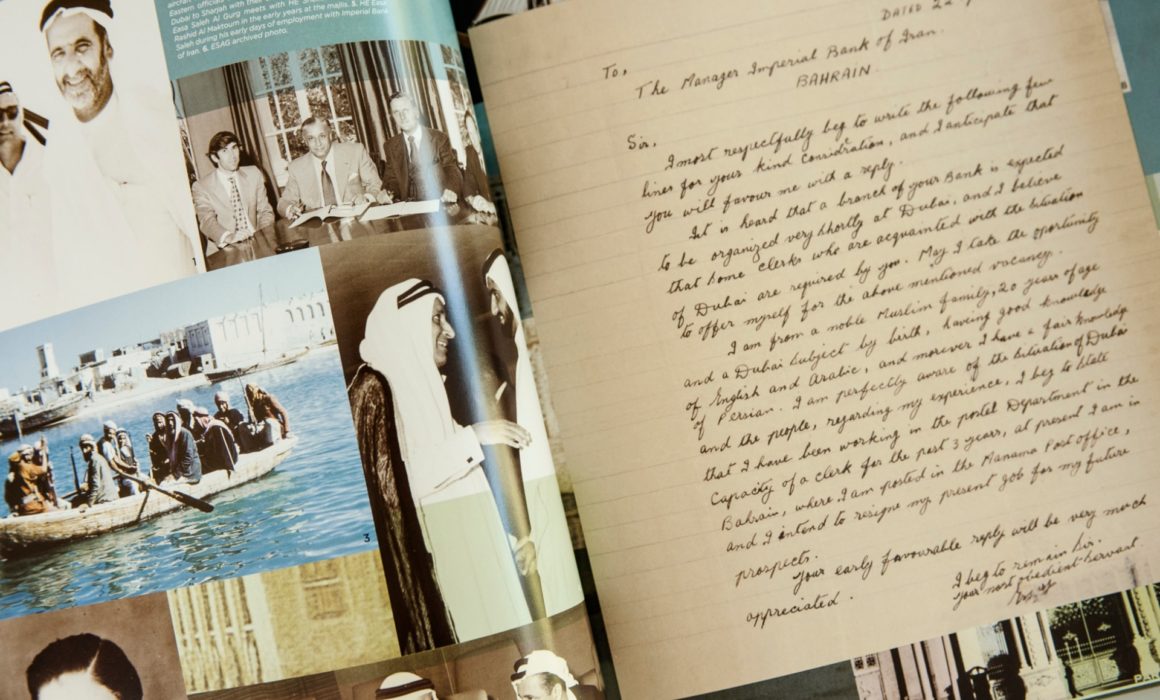 Eastern officials
Dubai to Sharjah with their
Easa Saleh Al Gurg meets with HE
Rashid Al Maktoum in the early years at the majlis. 5. HE Easa
Saleh during his early days of employment with Imperial Bank
of Iran. 6. ESAG archived photo.
1
3
DATED 22
To,
The Manager Imperial Bank of Iran.
BAHRAIN.
Sir,
I most respectfully beg to write the following few
lines for your kind consideration, and I anticipate that
you will favour me with a reply.
It is heard that a branch of your Bank is expected
to be organized very shortly at Dubai, and I believe
that some clerks who are acquainted with the situation
of Dubai are required by you. May I take the oportunity
to offer myself for the above mentioned vacancy.
I am from a noble Muslim family, 20 years of age
and a Dubai subject by birth, having good knowledge
of English and Arabic, and morever I have a fair knowledge
of Persian. I am perfectly aware of the situation of Dubai
and the people, regarding my experience, I beg to state
that I have been working in the postel Department in the
Capacity of a clerk for the past 3 years, at present I am in
Bahrain, where I am posted in the Manama Post office,
and I intend to resign my present job for my future
prospects.
Your early favourable reply will be very much
appreciated.
I beg to remain Sir.
Your most obedient servant.